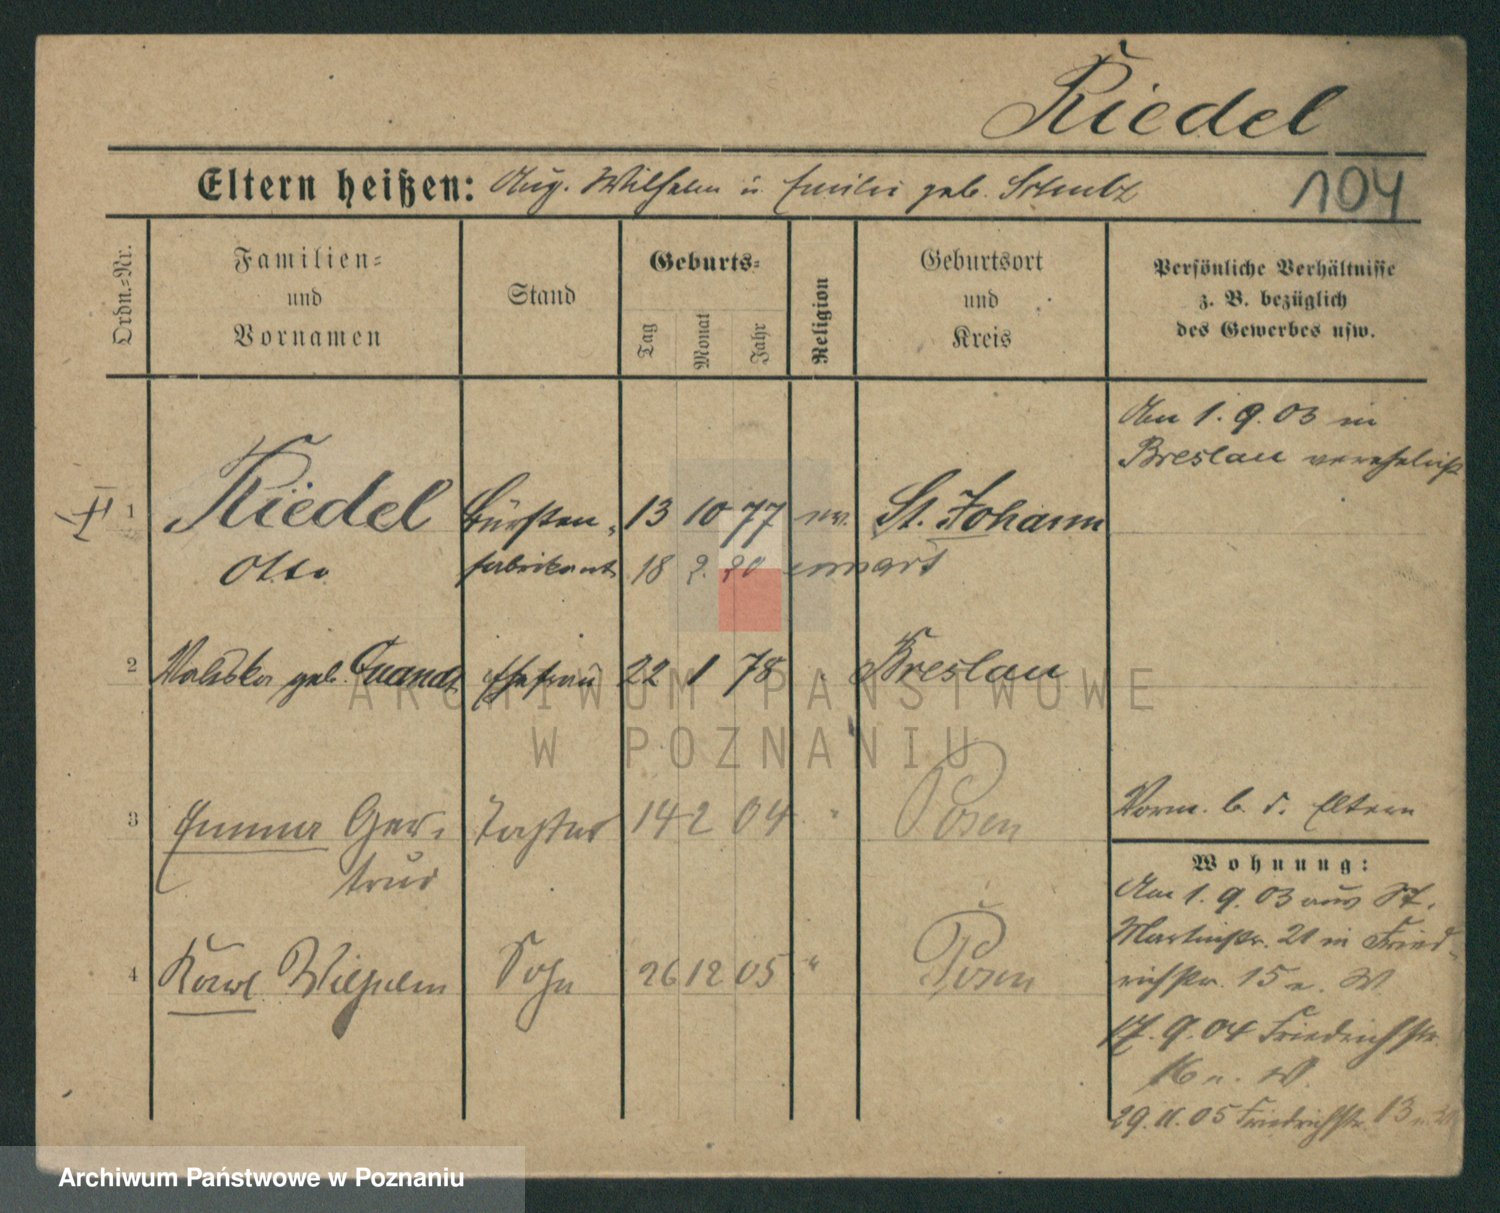 Riedel
Eltern heißen: Aug. Wilhelm u. Emilie geb. Schulz
104
Ordn.-Nr.
Familien-
und
Vornamen
Stand
Geburts-
Tag
Monat
Jahr
Religion
Geburtsort
und
Kreis
Persönliche Verhältnisse
z. B. bezüglich
des Gewerbes usw.
Am 1. 9. 03 in
Breslau verehelicht
II 1 Riedel Bürsten- 13 10 77 ev. St. Johann
Otto fabrikant 18 2. 20
2 Valeska geb. Quandt Ehefrau 22 1 78 " Breslau
3 Emma Ger- Tochter 14 2 04 " Posen
trud
4 Karl Wilhelm Sohn 26 12 05 " Posen
Vorm. b. d. Eltern
Wohnung:
Am 1. 9. 03 aus St.
Martinstr. 21 in Fried-
richstr. 15 n. W.
17. 9. 04 Friedrichstr.
16 n. W.
29. 11. 05 Friedrichstr. 13
ARCHIWUM PAŃSTWOWE
W POZNANIU
Archiwum Państwowe w Poznaniu